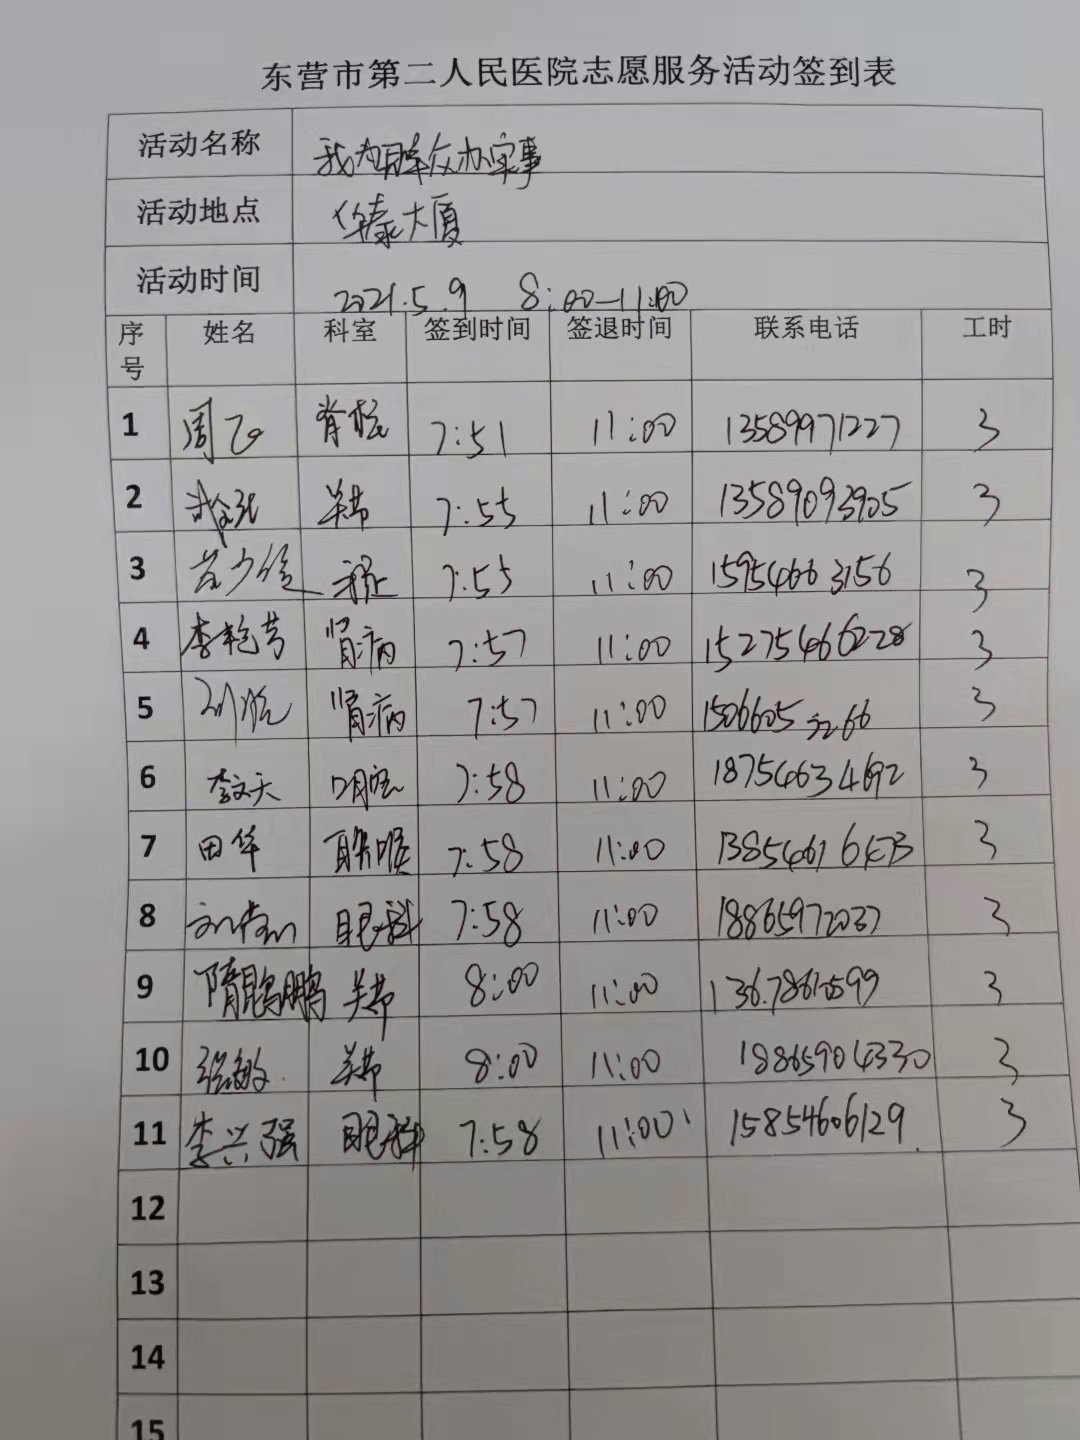 东营市第二人民医院志愿服务活动签到表
活动名称 我为群众办实事
活动地点 华泰大厦
活动时间 2021.5.9 8:00-11:00
序号 姓名 科室 签到时间 签退时间 联系电话 工时
1 周飞 脊柱 7:51 11:00 13589971227 3
2 关节 7:55 11:00 13589093905 3
3 7:55 11:00 15954663156 3
4 李艳芳 肾病 7:57 11:00 15275466228 3
5 肾病 7:57 11:00 15066053266 3
6 李文天 口腔 7:58 11:00 18754634692 3
7 田华 耳鼻喉 7:58 11:00 3
8 眼科 7:58 11:00 18865972037 3
9 隋鹍鹏 关节 8:00 11:00 3
10 张敏 关节 8:00 11:00 18865904330 3
11 李兴强 眼科 7:58 11:00 15854606129 3
12
13
14
15